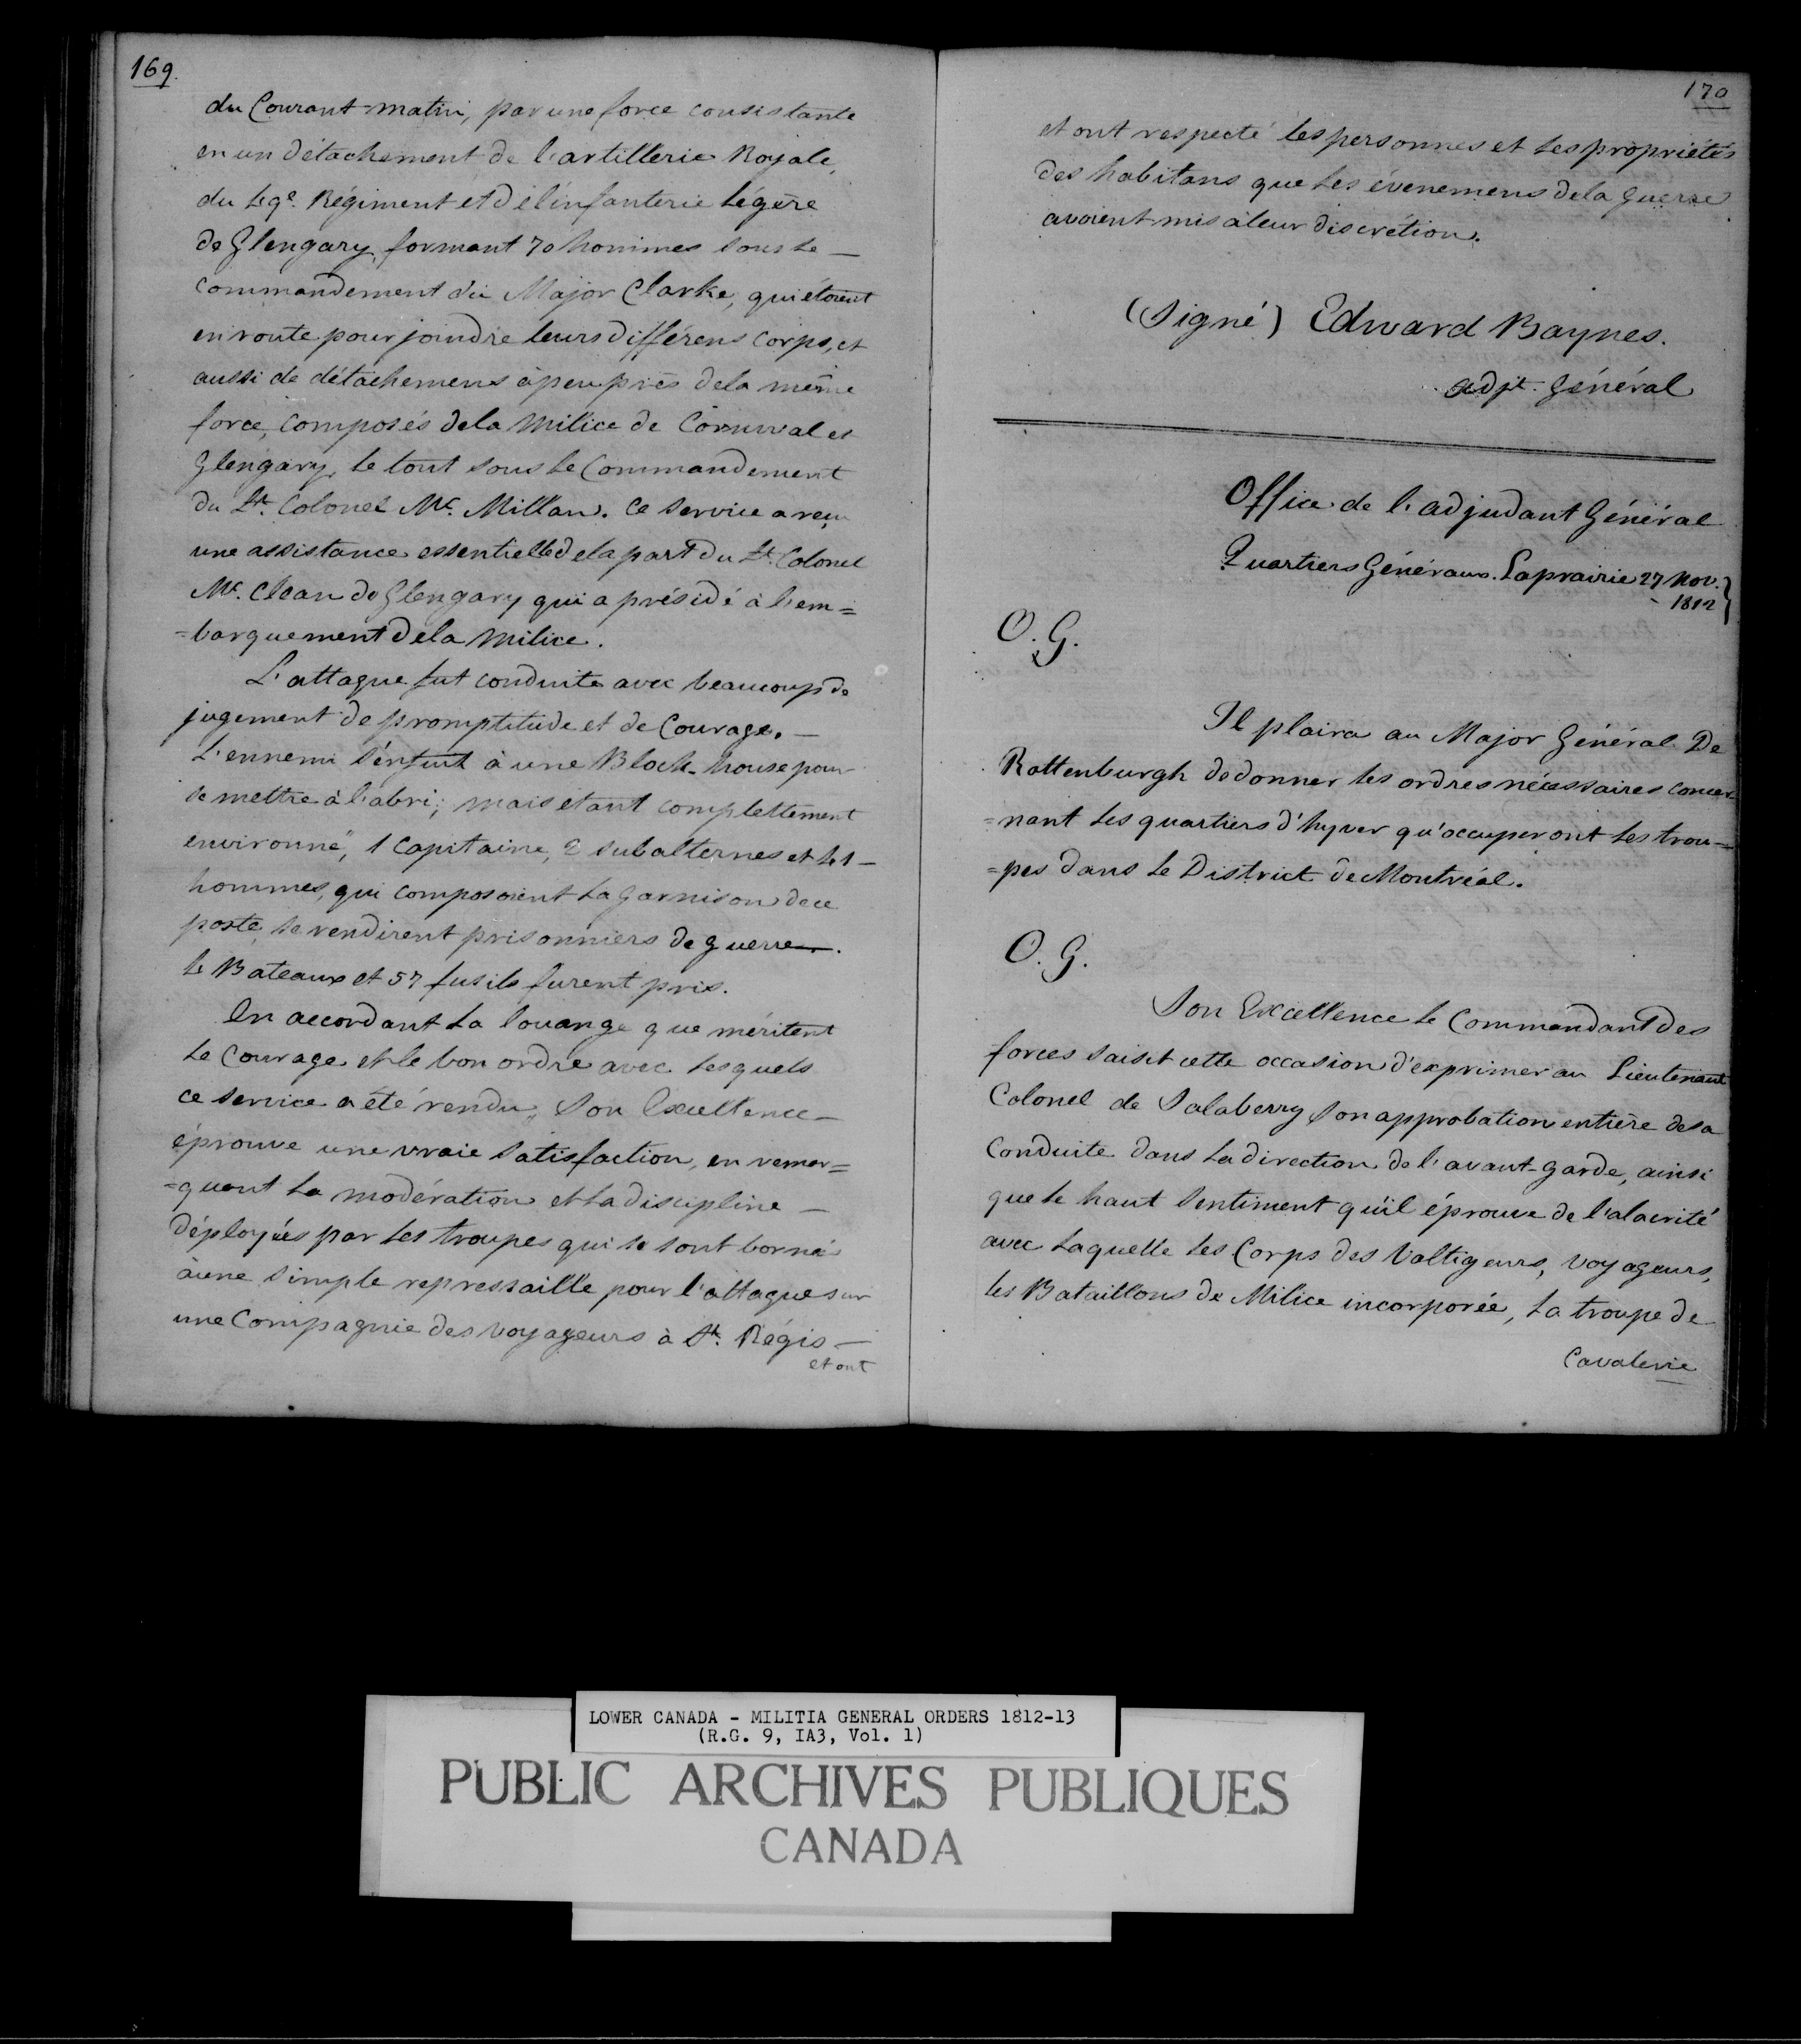 169.
du Courant matin, par une force consistante
en un détachement de l'artillerie Royale,
du 49e. Régiment et de l'infanterie légère
de Glengary, formant 70 hommes sous le —
commandement du Major Clarke, qui étoient
en route pour joindre leurs différens corps, et
aussi de détachemens à peu près de la même
force, composés de la Milice de Cornwal et
Glengary, le tout sous le Commandement
du Lt. Colonel Mc. Millan. Ce service a reçu
une assistance essentielle de la part du Lt. Colonel
Mc. Clean de Glengary qui a présidé à l'em=
=barquement de la Milice.
L'attaque fut conduite avec beaucoup de
jugement de promptitude et de Courage. —
L'ennemi s'enfuit à une Block-house pour
se mettre à l'abri; mais étant complettement
environné, 1 Capitaine, 2 subalternes et 41 —
hommes, qui composoient la garnison de ce
poste, se rendirent prisonniers de guerre —.
4 Bateaux et 57 fusils furent pris.
En accordant la louange que méritent
le Courage et le bon ordre avec lesquels
ce service a été rendu, Son Excellence —
éprouve une vraie satisfaction, en remar=
=quant la modération et la discipline —
déployées par les troupes qui se sont bornés
à une simple repressaille pour l'attaque sur
une Compagnie des Voyageurs à St. Régis —
et ont
170
et ont respecté les personnes et les propriétés
des habitans que les évenemens de la Guerre
avoient mis à leur discrétion.
(Signé) Edward Baynes.
Adjt. Général
Office de l'adjudant Général
Quartiers Généraux. Laprairie 27 Nov. }
1812
O. G.
Il plaira au Major Général De
Rottenburgh de donner les ordres nécessaires concer=
=nant les quartiers d'hyver qu'occuperont les trou=
=pes dans le District de Montréal.
O. G.
Son Excellence le Commandant des
forces saisit cette occasion d'exprimer au Lieutenant
Colonel de Salaberry son approbation entière de sa
Conduite dans la direction de l'avant-garde, ainsi
que le haut sentiment qu'il éprouve de l'alacrité
avec laquelle les Corps des Voltigeurs, Voyageurs,
les Bataillons de Milice incorporée, la troupe de
Cavalerie
LOWER CANADA - MILITIA GENERAL ORDERS 1812-13
(R.G. 9, IA3, Vol. 1)
PUBLIC ARCHIVES PUBLIQUES
CANADA